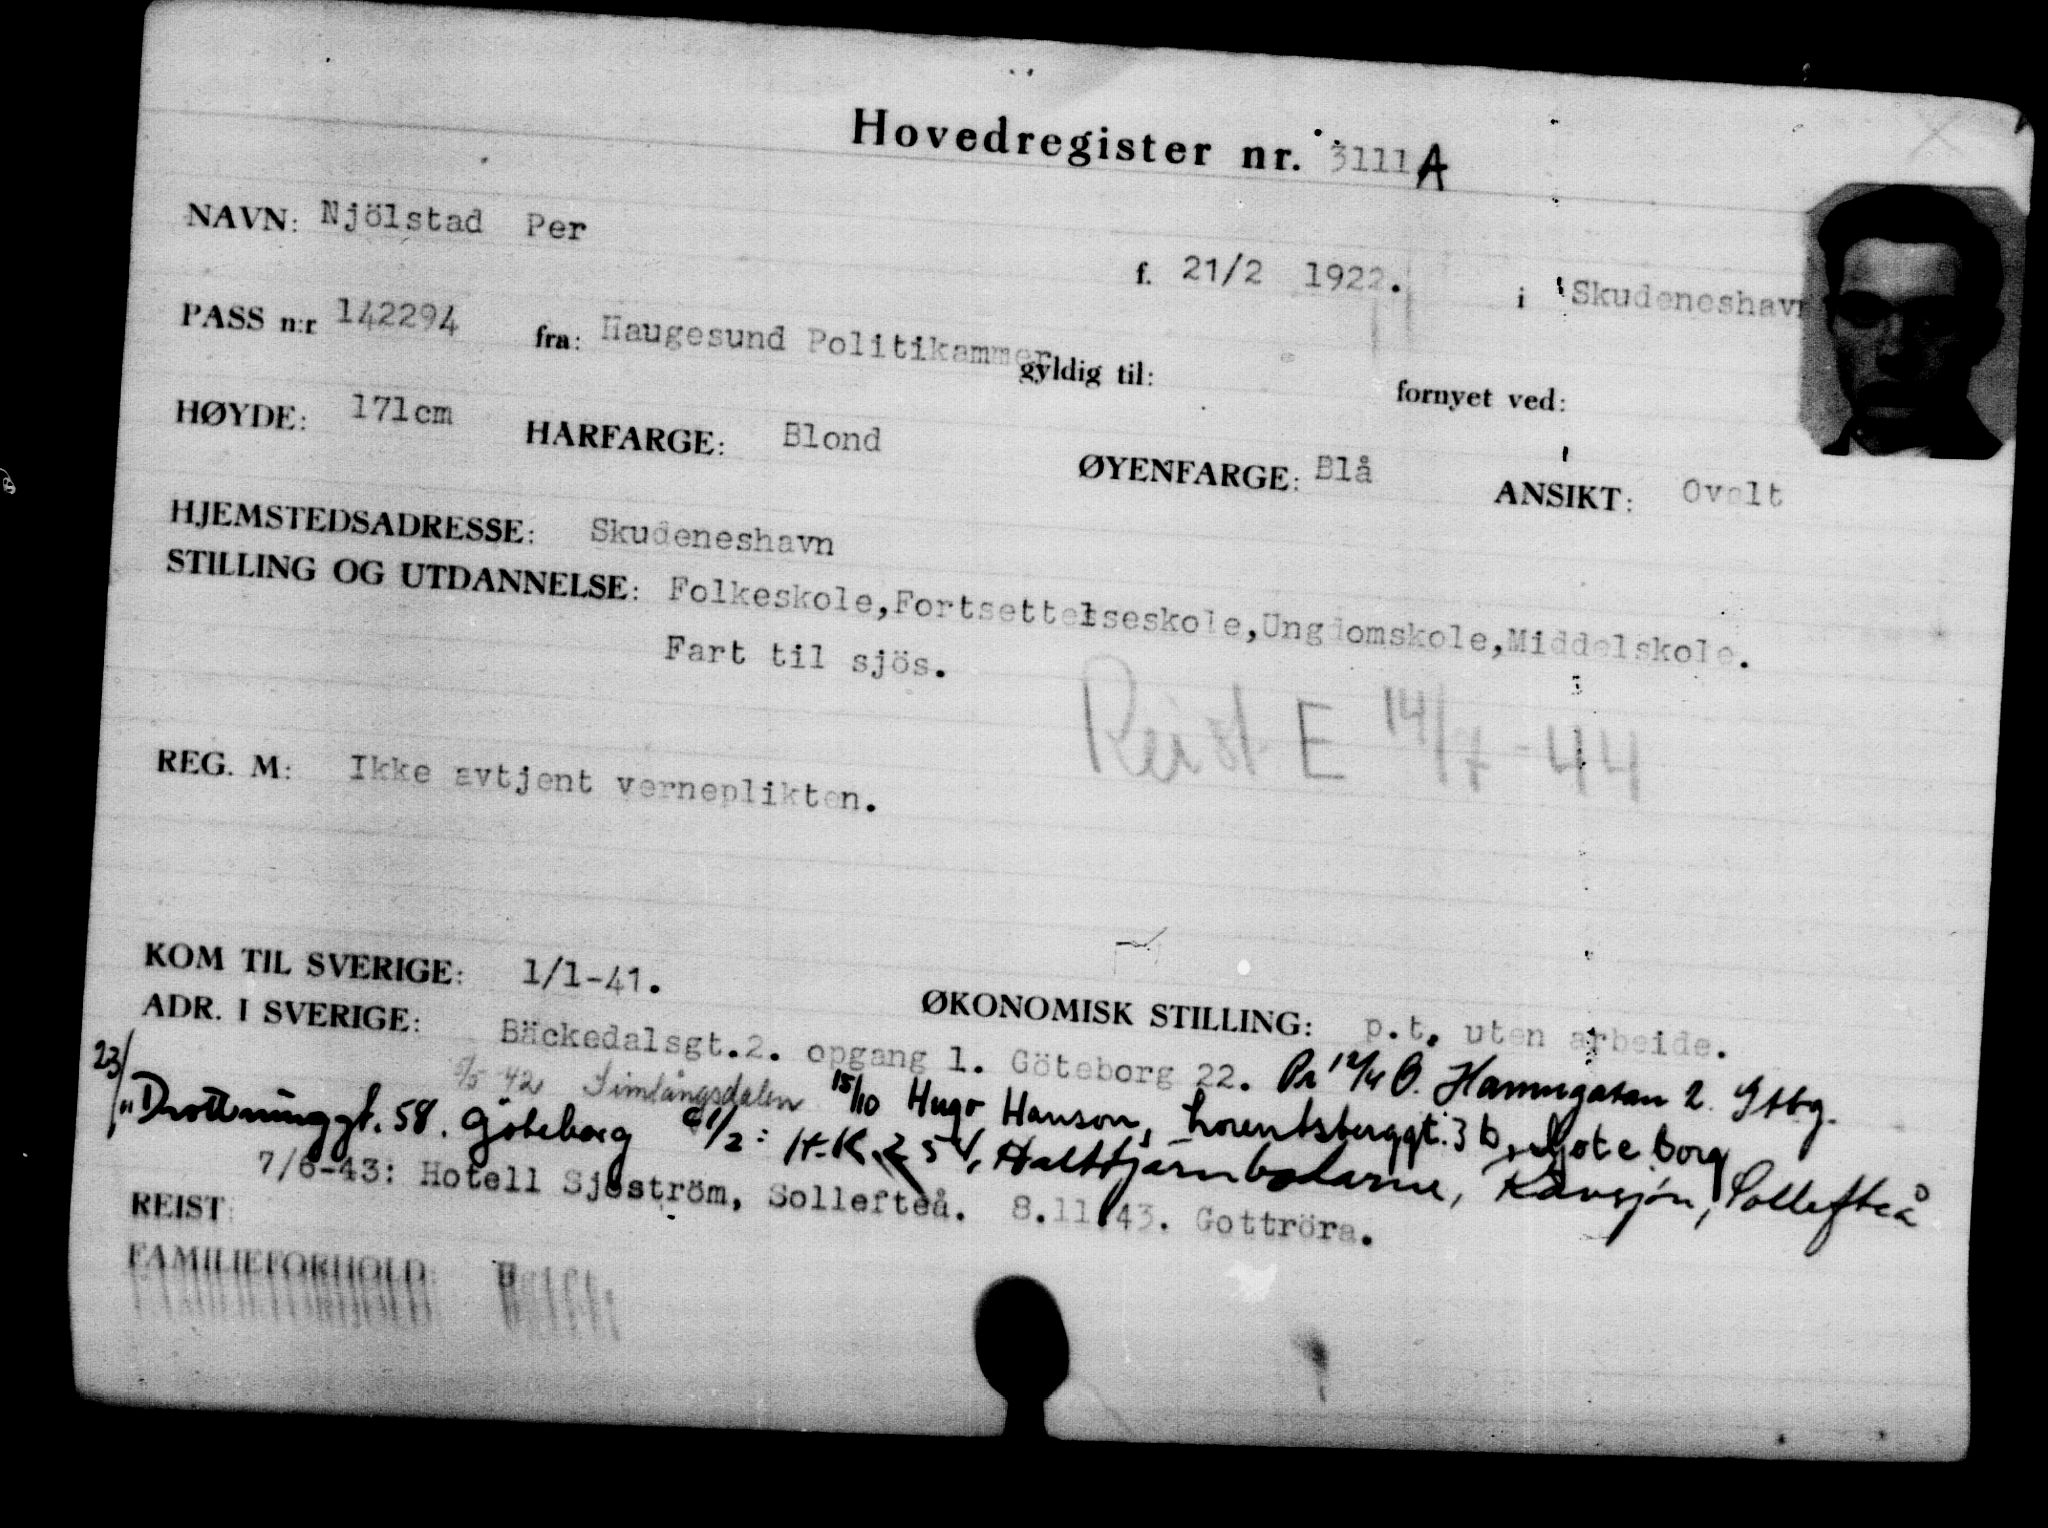 Hovedregister nr. 3111 A
NAVN: Njölstad Per f. 21/2 1922. i Skudeneshavn
PASS n:r 142294 fra: Haugesund Politikammer gyldig til: fornyet ved:
HØYDE: 171cm HARFARGE: Blond ØYENFARGE: Blå ANSIKT: Ovalt
HJEMSTEDSADRESSE: Skudeneshavn
STILLING OG UTDANNELSE: Folkeskole,Fortsettelseskole,Ungdomskole,Middelskole.
Fart til sjös.
Reist E 14/7-44
REG. M: Ikke avtjent verneplikten.
KOM TIL SVERIGE: 1/1-41. ØKONOMISK STILLING: p.t. uten arbeide.
ADR. I SVERIGE: Bäckedalsgt.2. opgang 1. Göteborg 22. Pr 12/4 Ö. Hamngatan 2. Gtbg.
23/11 Drottninggt. 58. Göteborg /5 42 Simlångsdalen 15/10 Hugo Hanson, Lorentsberggt. 3 b, Göteborg
1/2: H.K. 254, Kävsjön, Sollefteå
7/6-43: Hotell Sjöström, Sollefteå. 8.11.43. Gottröra.
REIST:
FAMILIEFORHOLD: